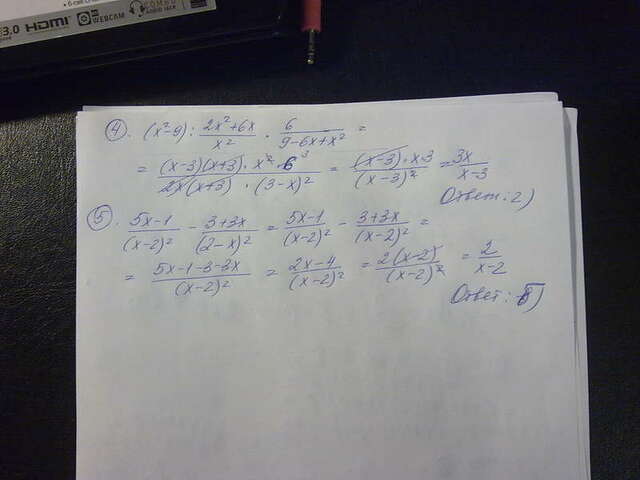 3.0 HDMI HD WEBCAM COMBO AUDIO JACK
④. (x²-9) : \frac{2x²+6x}{x²} · \frac{6}{9-6x+x²} =
= \frac{(x-3)(x+3) · x² · 6 ³}{2x(x+3) · (3-x)²} = \frac{(x-3) · x · 3}{(x-3)²} = \frac{3x}{x-3}
Ответ: 2)
⑤. \frac{5x-1}{(x-2)²} - \frac{3+3x}{(2-x)²} = \frac{5x-1}{(x-2)²} - \frac{3+3x}{(x-2)²} =
= \frac{5x-1-3-3x}{(x-2)²} = \frac{2x-4}{(x-2)²} = \frac{2(x-2)}{(x-2)²} = \frac{2}{x-2}
Ответ: )